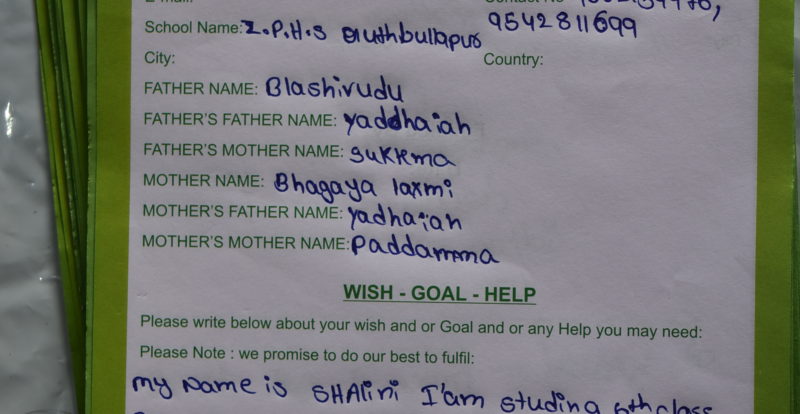 School Name: Z.P.H.S
9542811699
City: Country:
FATHER NAME: Blashirudu
FATHER'S FATHER NAME: yaddhaiah
FATHER'S MOTHER NAME: sukkma
MOTHER NAME: Bhagaya laxmi
MOTHER'S FATHER NAME: yadhaiah
MOTHER'S MOTHER NAME: Paddamma
WISH - GOAL - HELP
Please write below about your wish and or Goal and or any Help you may need:
Please Note : we promise to do our best to fulfil:
my name is SHAlini I'am studing 6th class